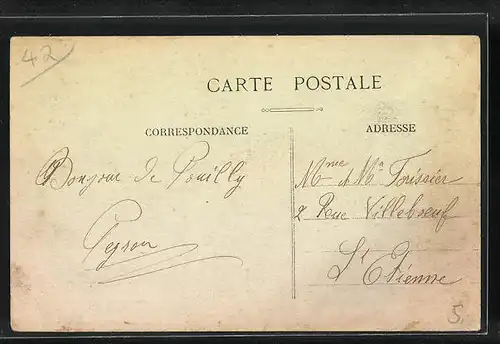 42
CARTE POSTALE
CORRESPONDANCE
ADRESSE
Bonjour de Pouilly
Peyron
Mme et Mr Forissier
2 Rue Villeboeuf
St Etienne
5